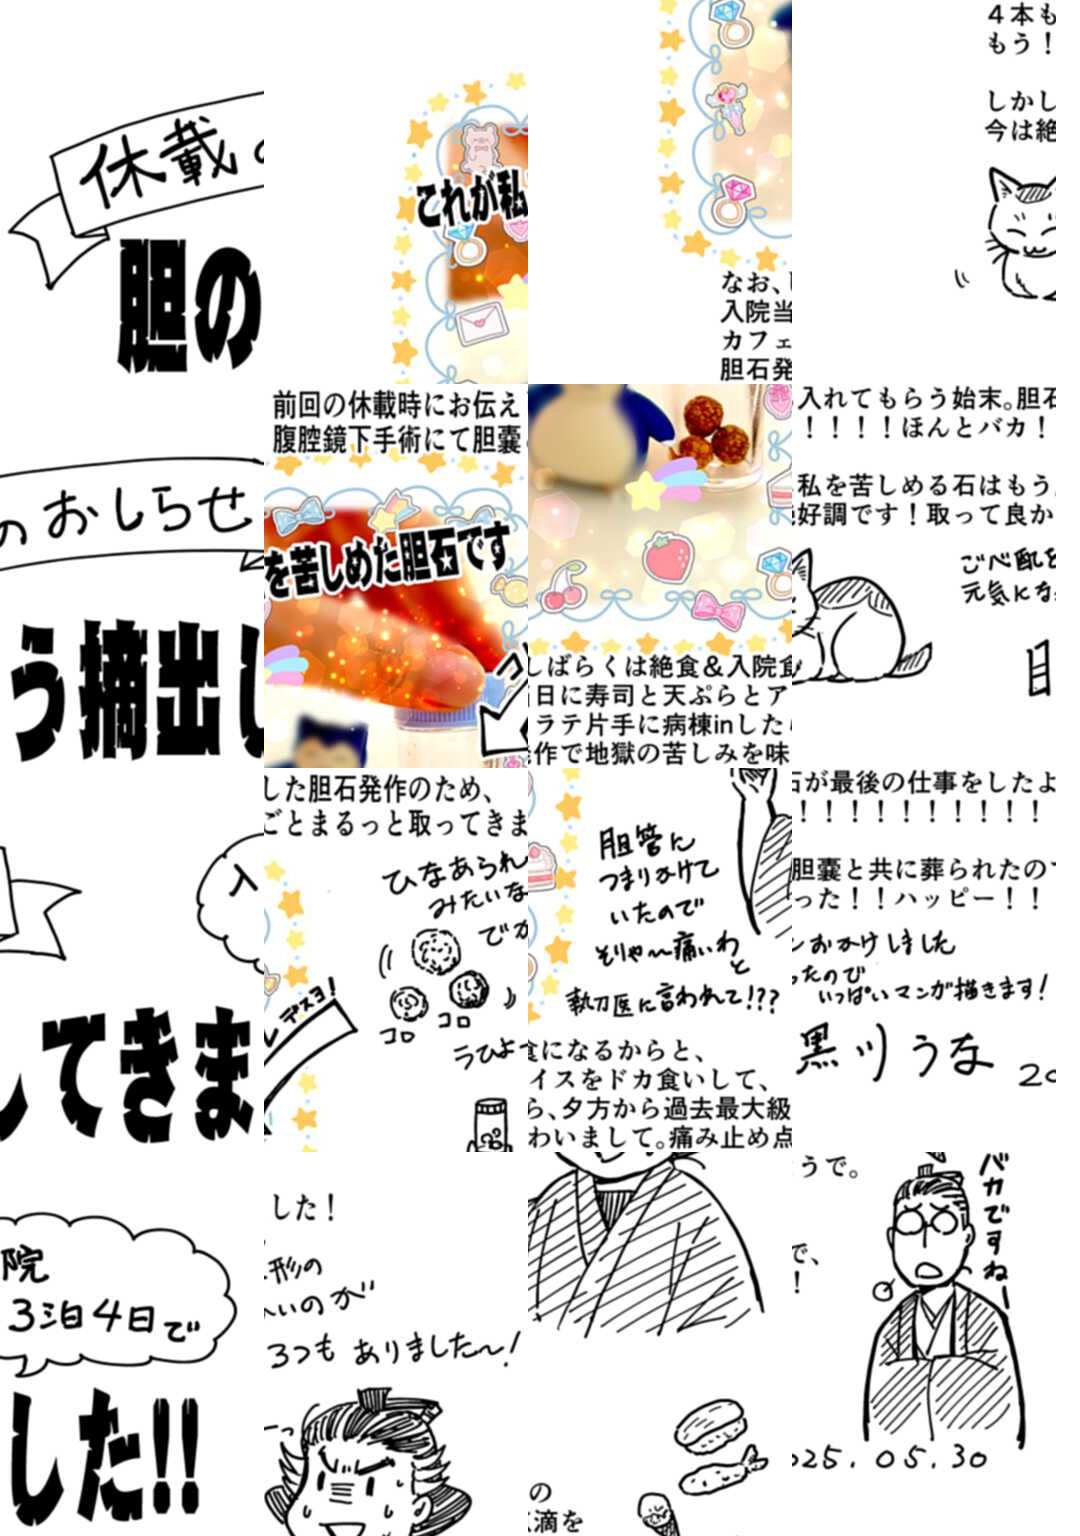 休載のおしらせ
入院
3泊4日で
胆のう摘出してきました!!
前回の休載時にお伝えした胆石発作のため、
腹腔鏡下手術にて胆嚢ごとまるっと取ってきました！
これが私を苦しめた胆石です
コレデスヨ！
ひなあられ
みたいな形の
でかいのが
3つもありました〜！
コロ
コロ
うひょーっ
胆管に
つまりかけて
いたので
そりゃ〜痛いわ
と
執刀医に言われて!??
なお、しばらくは絶食＆入院食になるからと、
入院当日に寿司と天ぷらとアイスをドカ食いして、
カフェラテ片手に病棟inしたら、夕方から過去最大級の
胆石発作で地獄の苦しみを味わいまして。痛み止め点滴を
４本も入れてもらう始末。胆石が最後の仕事をしたようで。
もう！！！！！ほんとバカ！！！！！！！！！！！
しかし私を苦しめる石はもう胆嚢と共に葬られたので、
今は絶好調です！取って良かった！！ハッピー！！！
バカですねー
ご心配をおかけしました
元気になったので
いっぱいマンガ描きます！
目黒川うな
2025.05.30